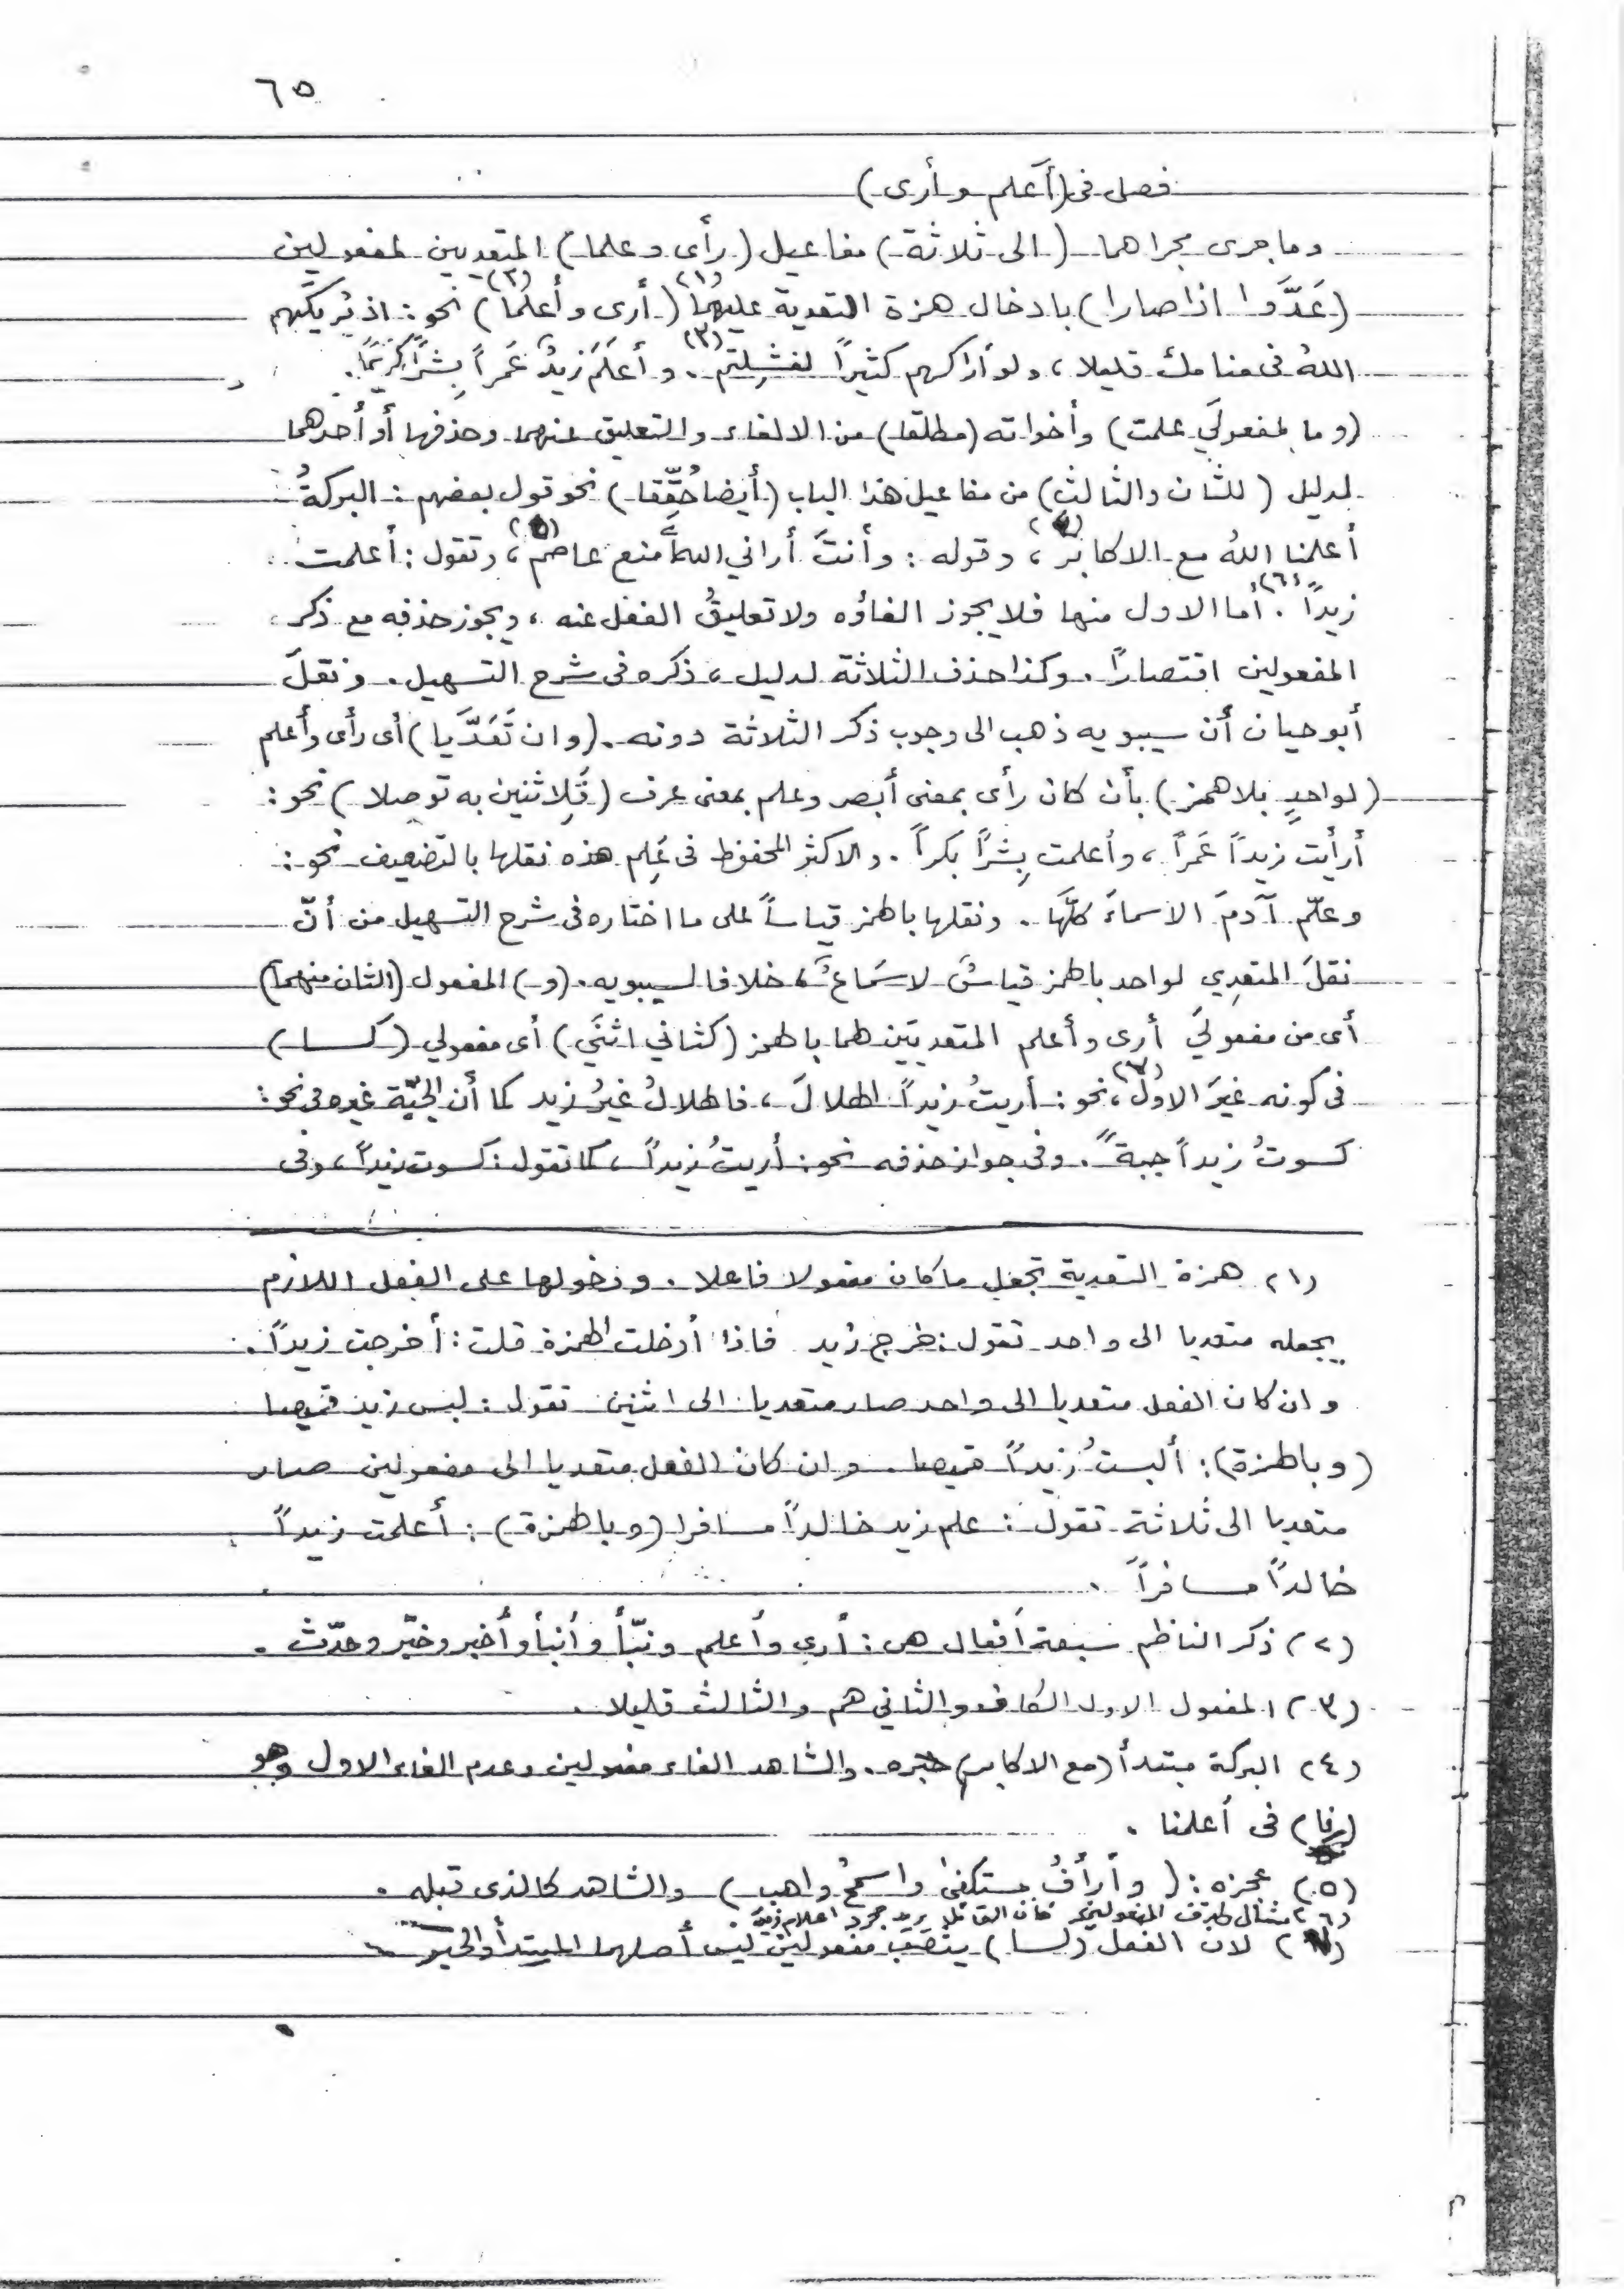 ٦٥
فصل فى (أعلم وأرى)
وما جرى مجراهما (الى ثلاثة) مفاعيل (رأى وعلما) المتعديين لمفعولين
(عَدَّوا اذا صارا) بادخال همزة التعدية عليهما (١) (أرى وأعلما) (٢) نحو: اذ يُريكَهم
اللهُ فى منامك قليلا، ولو أراكهم كثيراً لفشِلتم (٣). وأعلَمَ زيدٌ عَمراً بِشراً كريمًا.
(وما لمفعولَي علمت) وأخواته (مطلقا) من الالغاء والتعليق عنهما وحذفها أو أحدهما
لدليل (للثان والثالث) من مفاعيل هذا الباب (أيضا حُقِّقا) نحو قول بعضهم: البركةُ
أعلمنا اللهُ مع الاكابر (٤)، وقوله: وأنتَ أراني اللهُ أمنع عاصم (٥)، وتقول: أعلمت
زيداً (٦). أما الاول منها فلا يجوز الغاؤه ولا تعليقُ الفعل عنه، ويجوز حذفه مع ذكر
المفعولين اقتصاراً. وكذا حذف الثلاثة لدليل، ذكره فى شرح التسهيل. ونقلَ
أبوحيان أن سيبويه ذهب الى وجوب ذكر الثلاثة دونه. (وان تَعَدَّيا) أى رأى وأعلم
(لواحدٍ بلا همز) بأن كان رأى بمعنى أبصر وعلم بمعنى عرف (فَلِاثنين به توصلا) نحو:
أرأيت زيداً عَمراً، وأعلمت بِشراً بكراً. والاكثر المحفوظ فى عَلِم هذه نقلها بالتضعيف نحو:
وعلّم آدمَ الاسماءَ كلَّها. ونقلها بالهمز قياساً على ما اختاره فى شرح التسهيل من أنّ
نقلَ المتعدِي لواحد بالهمز قياسٌ لا سَماعٌ، خلافا لسيبويه. (و) المفعول (الثان منهما)
أى من مفعوليَ أرى وأعلم المتعديَين لهما بالهمز (كثاني اثنَي) أى مفعولي (كسا)
فى كونه غيَر الاول (٧)، نحو: أريتُ زيداً الهلالَ، فالهلالُ غيرُ زيد كما أن الجبّة غيره فى نحو:
كسوتُ زيداً جبةً. وفى جواز حذفه نحو: أريتُ زيداً، كما تقول: كسوت زيداً، وفى
(١) همزة التعدية تجعل ما كان مفعولا فاعلا. ودخولها على الفعل اللازم
يجعله متعديا الى واحد تقول: خرج زيد فاذا أدخلت الهمزة قلت: أخرجت زيداً.
وان كان الفعل متعديا الى واحد صار متعديا الى اثنين تقول: لبس زيد قميصا
(وبالهمزة): ألبستُ زيداً قميصا. وان كان الفعل متعديا الى مفعولين صار
متعديا الى ثلاثة تقول: علم زيد خالداً مسافرا (وبالهمزة): أعلمت زيداً
خالداً مسافراً.
(٢) ذكر الناظم سبعة أفعال هى: أرى وأعلم ونبّأ وأنبأ وأخبر وخبّر وحدّث.
(٣) المفعول الاول الكاف والثاني هم والثالث قليلا.
(٤) البركة مبتدأ (مع الاكابر) خبره. والشاهد الغاء مفعولين وعدم الغاء الاول وهو
(نا) فى أعلمنا.
(٥) عجزه: (وأرأفُ مستكفىً واسمحُ واهب) والشاهد كالذى قبله.
(٦) مثال لحذف المفعولين فان القائل يريد مجرد اعلام زيد.
(٧) لان الفعل (كسا) ينصب مفعولين ليس أصلهما المبتدأ والخبر